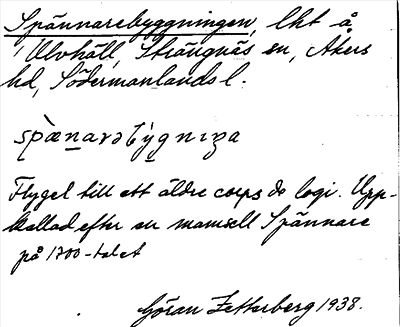 Spännarebyggningen, lht å
Ulvhäll, Strängnäs sn, Åkers
hd, Södermanlands l.
spænarəbỳgnıŋa
Flygel till ett äldre corps de logi. Upp-
kallad efter en mamsell Spännare
på 1700-talet
Göran Zetterberg 1938.